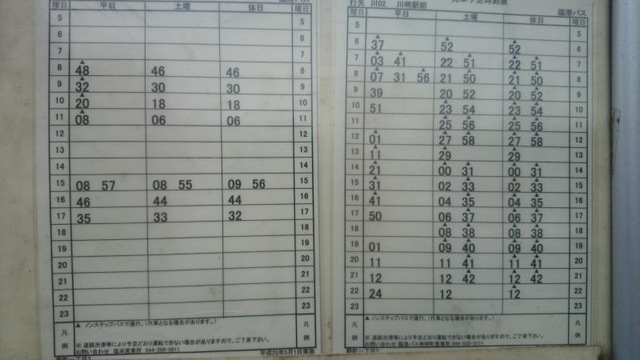 臨港バス
曜日 平日 土曜 休日 曜日
5 5
6 6
7 7
8 48 46 46 8
9 32 30 30 9
10 20 18 18 10
11 08 06 06 11
12 12
13 13
14 14
15 08 57 08 55 09 56 15
16 46 44 44 16
17 35 33 32 17
18 18
19 19
20 20
21 21
22 22
23 23
凡例 ▲ ノンステップバスで運行。(代車となる場合があります。)
※ 道路渋滞等により予定どおり運転できない場合がありますので、ご了承下さい。
行先 川02 川崎駅前
臨港バス
曜日 平日 土曜 休日 曜日
5 5
6 37 52 52 6
7 03 41 22 51 22 51 7
8 07 31 56 21 50 21 50 8
9 39 20 52 20 52 9
10 51 23 54 23 54 10
11 25 56 25 56 11
12 01 27 58 27 58 12
13 11 29 29 13
14 21 00 31 00 31 14
15 31 02 33 02 33 15
16 41 04 35 04 35 16
17 50 06 37 06 37 17
18 08 38 08 38 18
19 01 09 40 09 40 19
20 11 11 41 11 41 20
21 12 12 42 12 42 21
22 24 12 12 22
23 23
凡例 ▲ ノンステップバスで運行。(代車となる場合があります。)
※ 道路渋滞等により予定どおり運転できない場合がありますので、ご了承下さい。